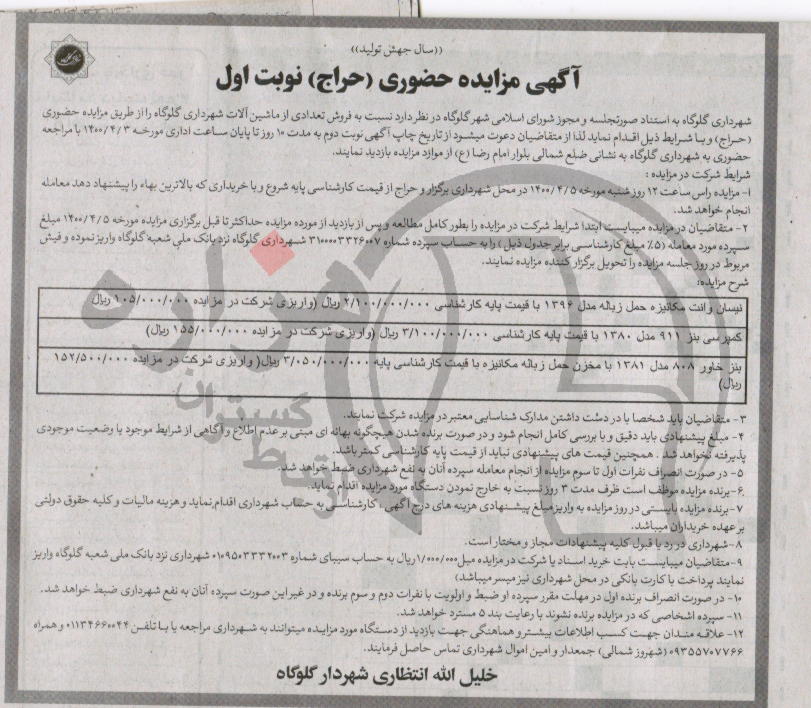 ((سال جهش تولید))
آگهی مزایده حضوری (حراج) نوبت اول
شهرداری گلوگاه به استناد صورتجلسه و مجوز شورای اسلامی شهر گلوگاه در نظر دارد نسبت به فروش تعدادی از ماشین آلات شهرداری گلوگاه را از طریق مزایده حضوری
(حراج) و با شرایط ذیل اقدام نماید لذا از متقاضیان دعوت میشود از تاریخ چاپ آگهی نوبت دوم به مدت ۱۰ روز تا پایان ساعت اداری مورخه ۱۴۰۰/۴/۳ با مراجعه
حضوری به شهرداری گلوگاه به نشانی ضلع شمالی بلوار امام رضا (ع) از موارد مزایده بازدید نمایند.
شرایط شرکت در مزایده :
۱- مزایده راس ساعت ۱۲ روز شنبه مورخه ۱۴۰۰/۴/۵ در محل شهرداری برگزار و حراج از قیمت کارشناسی پایه شروع و با خریداری که بالاترین بهاء را پیشنهاد دهد معامله
انجام خواهد شد.
۲- متقاضیان در مزایده میبایست ابتدا شرایط شرکت در مزایده را بطور کامل مطالعه و پس از بازدید از مورده مزایده حداکثر تا قبل برگزاری مزایده مورخه ۱۴۰۰/۴/۵ مبلغ
سپرده مورد معامله (۵٪ مبلغ کارشناسی برابر جدول ذیل) را به حساب سپرده شماره ۳۱۰۰۰۰۳۳۲۶۰۰۷ شهرداری گلوگاه نزد بانک ملی شعبه گلوگاه واریز نموده و فیش
مربوط در روز جلسه مزایده را تحویل برگزار کننده مزایده نمایند.
شرح مزایده:
نیسان وانت مکانیزه حمل زباله مدل ۱۳۹۶ با قیمت پایه کارشناسی ۲/۱۰۰/۰۰۰/۰۰۰ ریال (واریزی شرکت در مزایده ۱۰۵/۰۰۰/۰۰۰ ریال
کمپرسی بنز ۹۱۱ مدل ۱۳۸۰ با قیمت پایه کارشناسی ۳/۱۰۰/۰۰۰/۰۰۰ ریال (واریزی شرکت در مزایده ۱۵۵/۰۰۰/۰۰۰ ریال)
بنز خاور ۸۰۸ مدل ۱۳۸۱ با مخزن حمل زباله مکانیزه با قیمت کارشناسی پایه ۳/۰۵۰/۰۰۰/۰۰۰ ریال( واریزی شرکت در مزایده ۱۵۲/۵۰۰/۰۰۰
ریال)
۳- متقاضیان باید شخصا با در دست داشتن مدارک شناسایی معتبر در مزایده شرکت نمایند.
۴- مبلغ پیشنهادی باید دقیق و با بررسی کامل انجام شود و در صورت برنده شدن هیچگونه بهانه ای مبنی بر عدم اطلاع و آگاهی از شرایط موجود یا وضعیت موجودی
پذیرفته نخواهد شد . همچنین قیمت های پیشنهادی نباید از قیمت پایه کارشناسی کمتر باشد.
۵- در صورت انصراف نفرات اول تا سوم مزایده از انجام معامله سپرده آنان به نفع شهرداری ضبط خواهد شد.
۶-برنده مزایده موظف است ظرف مدت ۳ روز نسبت به خارج نمودن دستگاه مورد مزایده اقدام نماید.
۷-برنده مزایده بایستی در روز مزایده به واریز مبلغ پیشنهادی هزینه های درج آگهی ، کارشناسی به حساب شهرداری اقدام نماید و هزینه مالیات و کلیه حقوق دولتی
بر عهده خریداران میباشد.
۸-شهرداری در رد یا قبول کلیه پیشنهادات مجاز و مختار است.
۹-متقاضیان میبایست بابت خرید اسناد یا شرکت در مزایده مبل ۱/۰۰۰/۰۰۰ ریال به حساب سیبای شماره ۰۱۰۹۵۰۳۳۳۲۰۰۳ شهرداری نزد بانک ملی شعبه گلوگاه واریز
نمایند پرداخت با کارت بانکی در محل شهرداری نیز میسر میباشد)
۱۰- در صورت انصراف برنده اول در مهلت مقرر سپرده او ضبط و اولویت با نفرات دوم و سوم برنده و در غیر این صورت سپرده آنان به نفع شهرداری ضبط خواهد شد.
۱۱- سپرده اشخاصی که در مزایده برنده نشوند با رعایت بند ۵ مسترد خواهد شد.
۱۲- علاقه مندان جهت کسب اطلاعات بیشتر و هماهنگی جهت بازدید از دستگاه مورد مزایده میتوانند به شهرداری مراجعه یا با تلفن ۰۱۱۳۴۶۶۰۰۴۴ و همراه
۰۹۳۵۵۷۰۷۷۶۶ (شهروز شمالی) جمعدار و امین اموال شهرداری تماس حاصل فرمایند.
خلیل الله انتظاری شهردار گلوگاه